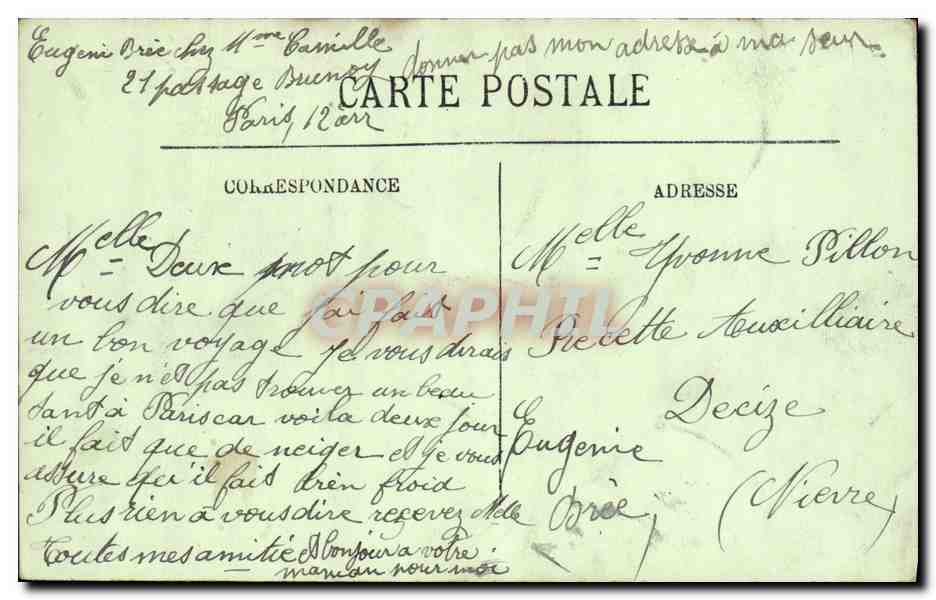 Eugeni Brée chez Mme Camille
21 passage Brunoy
Paris, 12 arr
donner pas mon adresse à ma seur
CARTE POSTALE
CORRESPONDANCE
Melle Deux mot pour
vous dire que j'ai fait
un bon voyage je vous dirais
que je n'ét pas trouver un beau
tant à Paris car voila deux jour
il fait que de neiger et je vous
assure qu'il fait bien froid
Plus rien à vous dire reçevez Melle
toutes mes amitié et bonjour a votre
maman pour moi
Eugenie
Brée
ADRESSE
Melle Yvonne Pillon
Recette Auxilliaire
Decize
(Nievre)
CPAPHIL